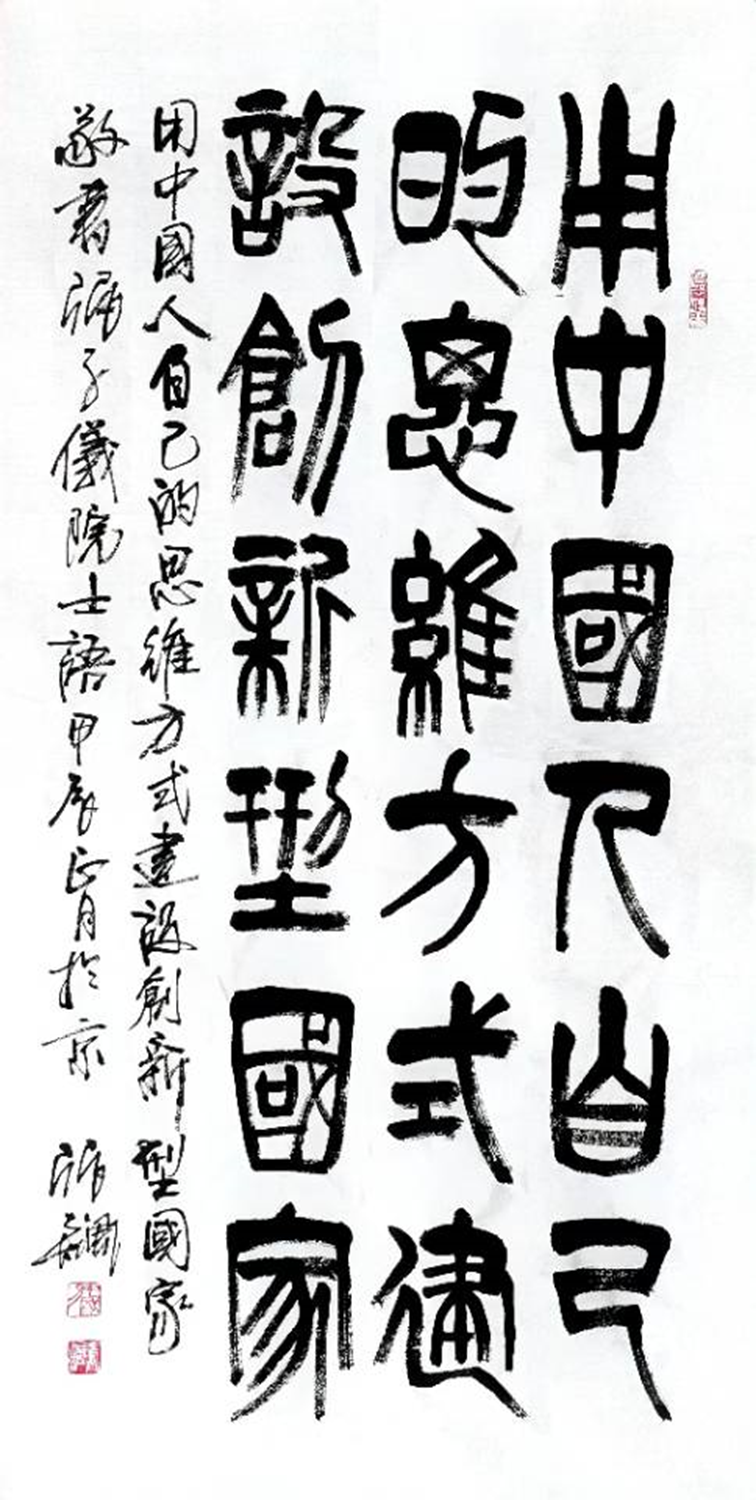 用中國人自己
的思維方式建
設創新型國家
用中國人自己的思維方式建設創新型國家
敬書張子儀院士語甲辰正月於京 張飆